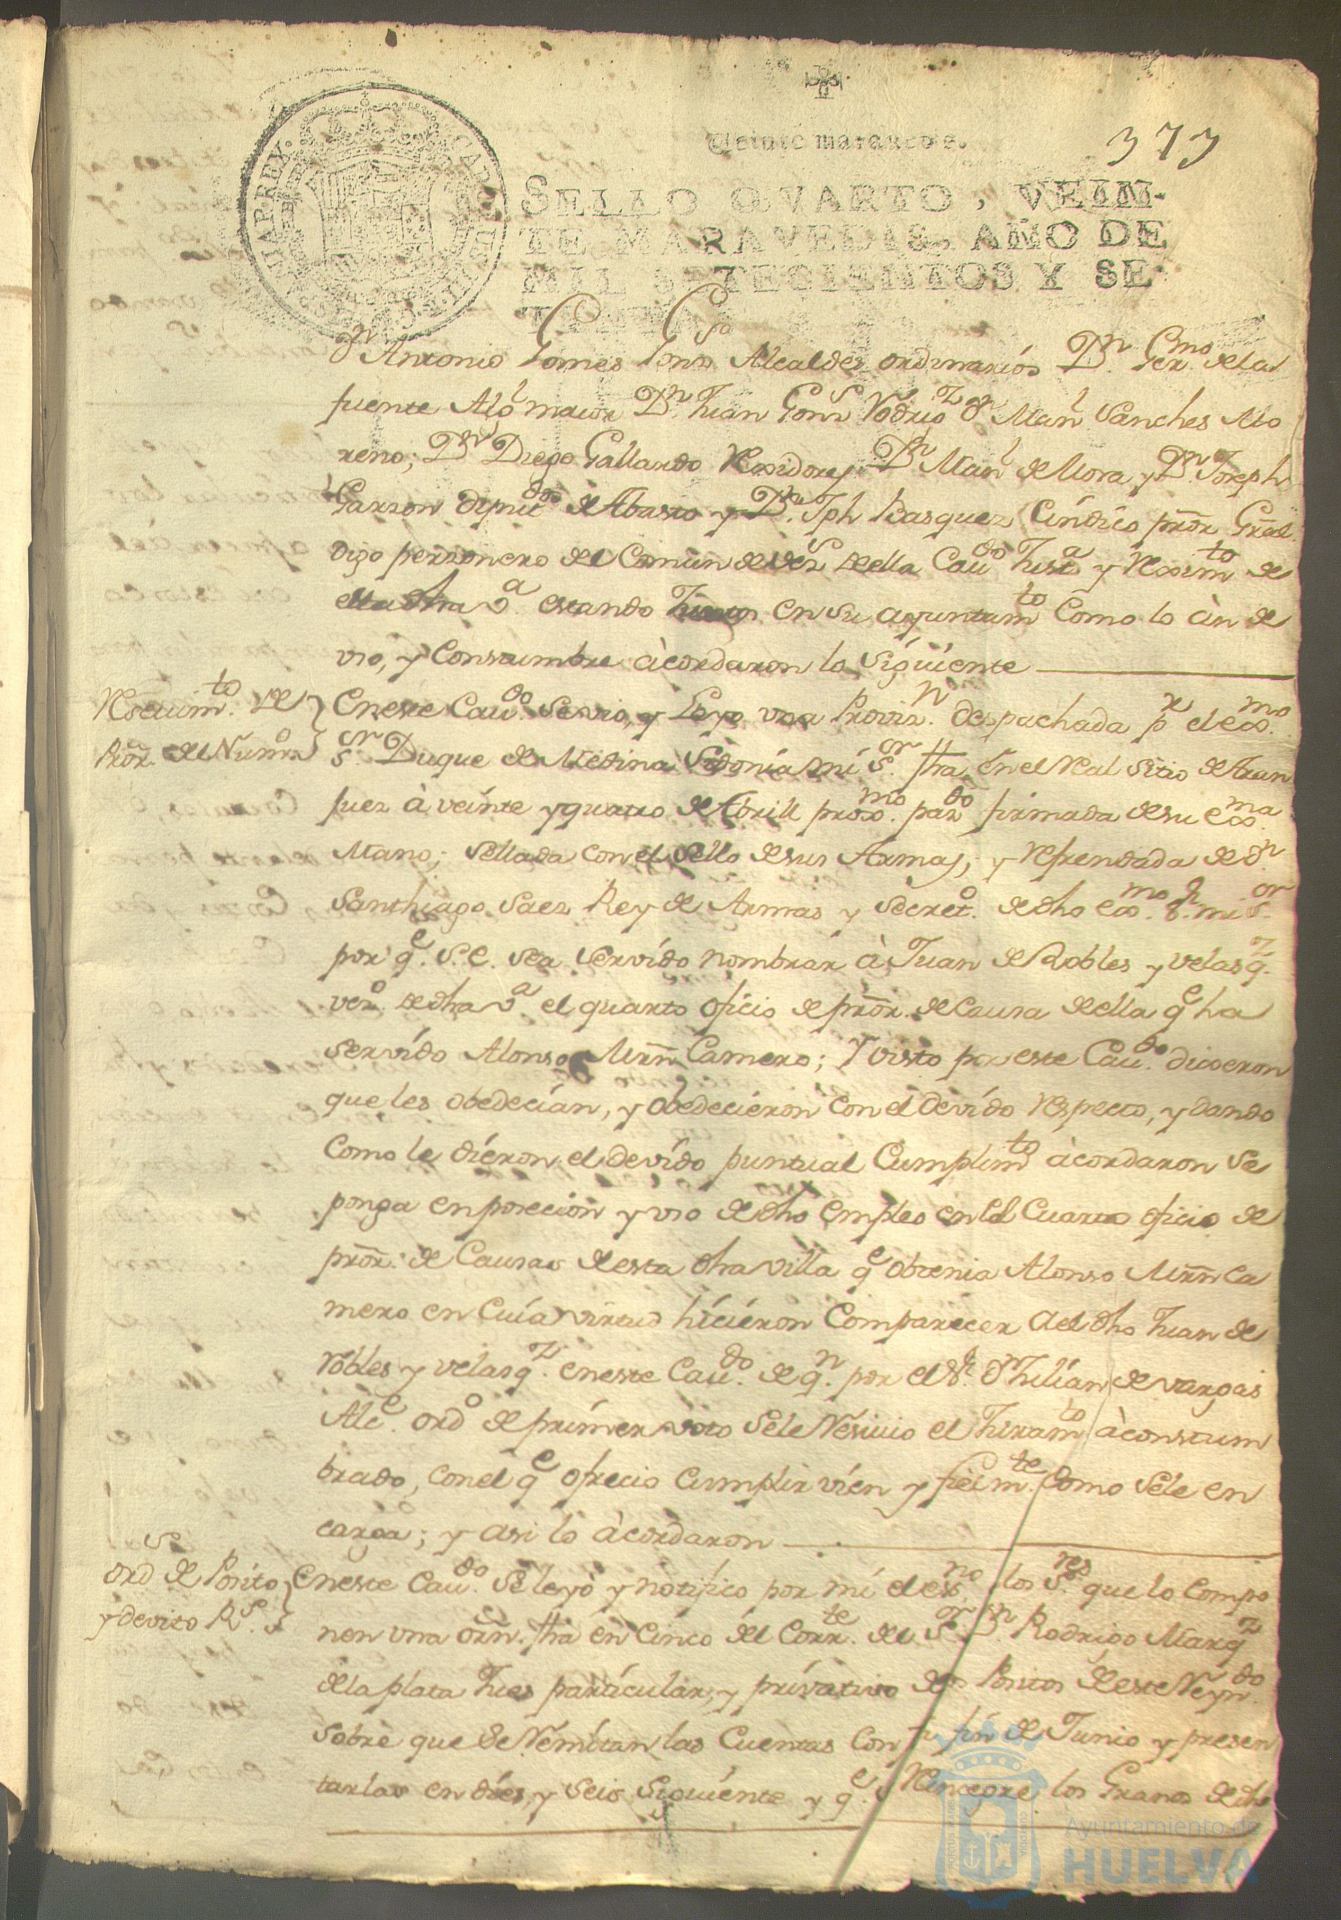 Veinte maravedis.
377
SELLO QVARTO, VEIN-
TE MARAVEDIS, AÑO DE
MIL SETECIENTOS Y SE-
CAR
HIAR. REY.
Dn Antonio Gomes Alcaldes ordinarios Dn Germo de la
fuente Algl maior Dn Juan Gonz Rodrigz Dn Manl Sanches Mo
reno; Dn Diego Gallardo Rexidores Dn Manl de Mora y Dn Joseph
Garzon diputdos de Abasto y Dn Jph Basquez Cindico pror Gral
digo personero del Comun de vez de ella Caudo Justa y Rexim to de
esta dha va estando Juntos en su ayuntamto como lo àn de
vso, y Constumbre àcordaron lo siguiente
Reseuimto de
Pror del Numo
En este Caudo se vio, y Leyo vna Provizn despachada pr el exmo
sr Duque de Medina Sidonia mi sor fha en el Real sitio de Aran
juez à veinte y quatro de Abrill proxmo pasdo firmada de su exma
Mano; sellada con el sello de sus Armas; y Refrendada de Dn
Santhiago Saez Rey de Armas y secreto de dho exmo sr mi sor
por qe S. E. sea servido nombrar à Juan de Robles y velasqz
vezo de dha va el quarto oficio de pror de Causa de ella qe ha
servido Alonso Mrn Camero; Y visto por este Caudo dixeron
que les obedecian, y obedecieron con el devido respecto, y dando
como le dieron el devido puntual Cumplimto àcordaron se
ponga en posecion y vso de dho empleo en el Cuarto oficio de
pror de Causas de esta dha villa qe obtenia Alonso Mrn Ca
mero en Cuia virtud hicieron Comparecer a el dho Juan de
Robles y velasqz en este Caudo de qn por el sr Dn Julian de vargas
Alce ordo de primer voto se le Resiuio el Juramto àconstum
brado, con el qe ofrecio Cumplir vien y fielmte como se le en
carga; y asi lo àcordaron
Ords de Posito
y devito Rs
En este Caudo se leyo y notifico por mi el esno a los sres que lo compo
nen vna orn fha en Cinco del Corrte de el Sr Dn Rodrigo Marqz
de la plata Jues particular, y privativo de Positos de este Reyndo
sobre que se Remitan las Cuentas con fin de Junio y presen
tarlas en dies, y seis siguiente y qe Reintegre los Granos de dho
Ayuntamiento de
HUELVA